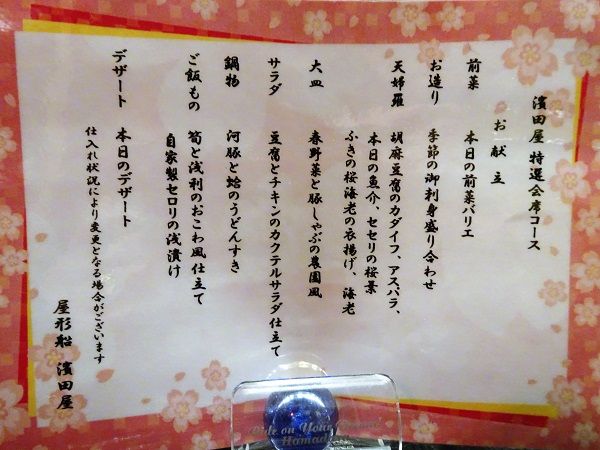 濱田屋 特選会席コース
お献立
前菜 本日の前菜バリエ
お造り 季節の御刺身盛り合わせ
天婦羅 胡麻豆腐のカダイフ、アスパラ、
本日の魚介、セセリの桜葉
ふきの桜海老の衣揚げ、海老
大皿 春野菜と豚しゃぶの農園風
サラダ 豆腐とチキンのカクテルサラダ仕立て
鍋物 河豚と蛤のうどんすき
ご飯もの 筍と浅利のおこわ風仕立て
自家製セロリの浅漬け
デザート 本日のデザート
仕入れ状況により変更となる場合がございます
屋形船 濱田屋
Ride on Your